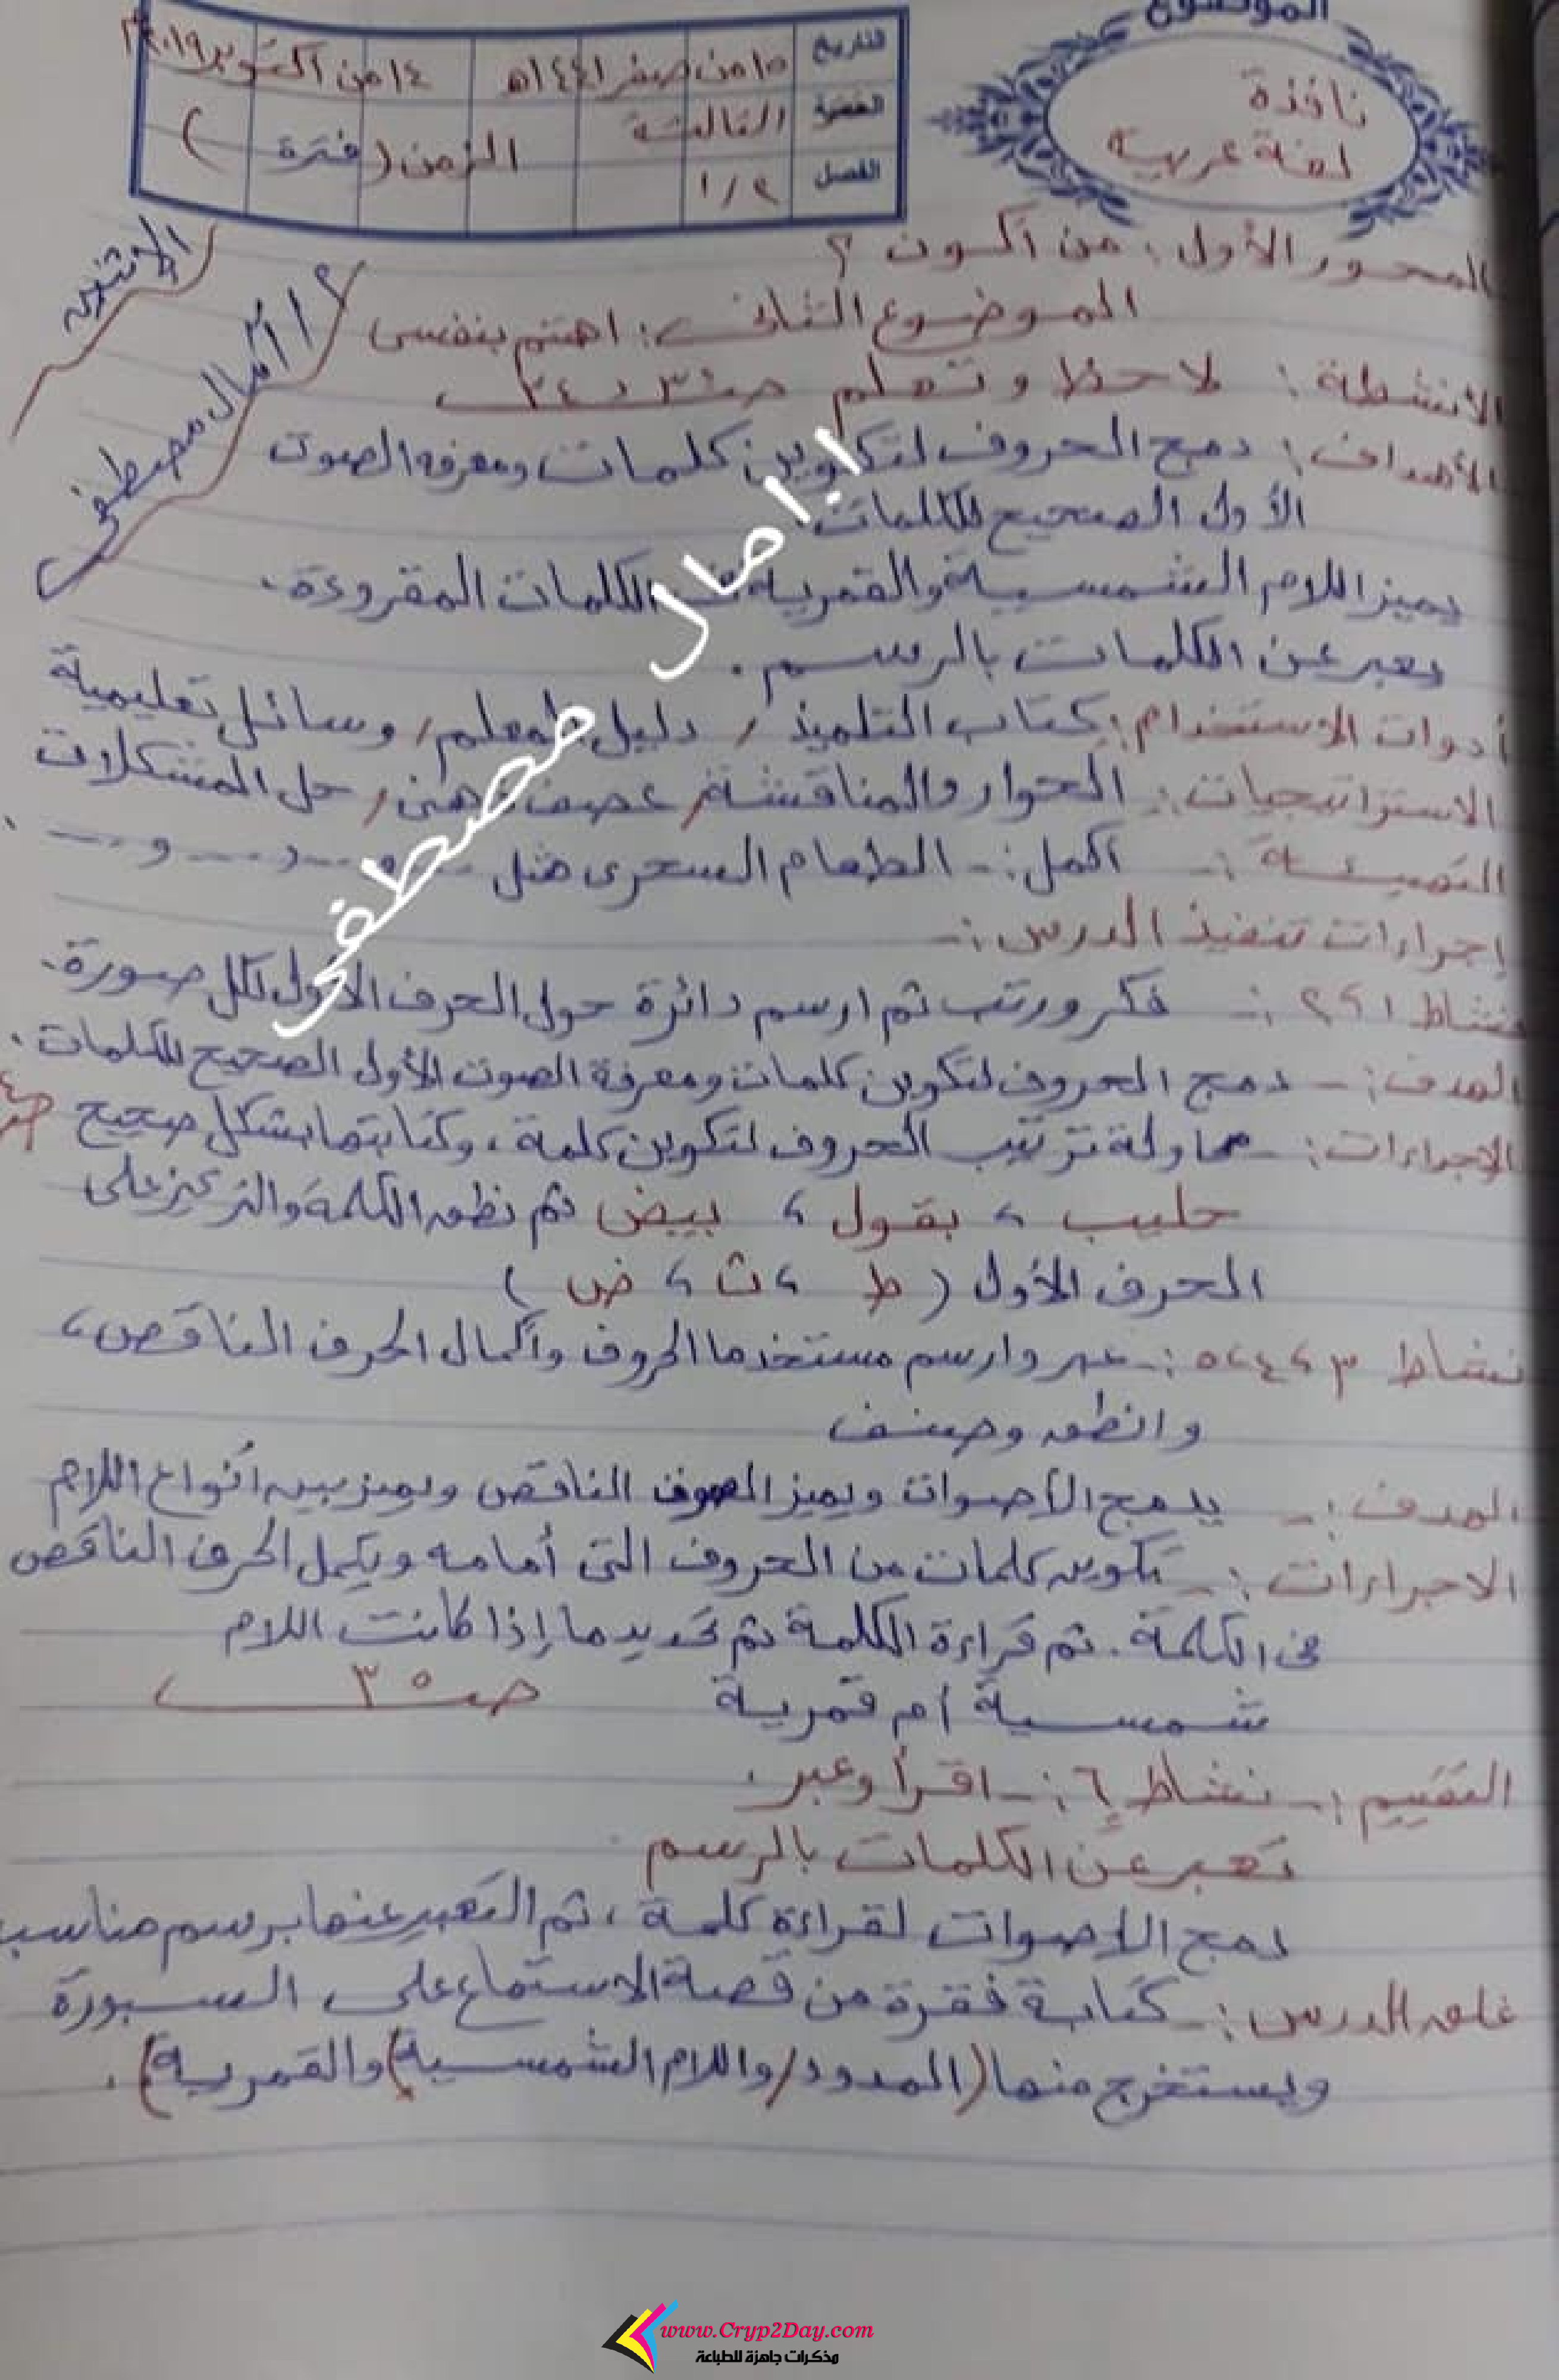 الموضوع
نافذة
لغة عربية
التاريخ ١٥ من صفر ١٤٤١هـ ١٤ من أكتوبر ٢٠١٩م
الحصة الثالثة الزمن (فترة )
الفصل ١/٢
الاثنين
أ/ آمال مصطفى
المحور الأول: من أكون؟
الموضوع الثانى: اهتم بنفسى
الأنشطة: لاحظ وتعلم صـ ٣٤
الأهداف: دمج الحروف لتكوين كلمات ومعرفة الصوت
الأول الصحيح للكلمات.
يميز اللام الشمسية والقمرية فى الكلمات المقروءة.
يعبر عن الكلمات بالرسم.
أدوات الاستخدام: كتاب التلميذ / دليل المعلم / وسائل تعليمية
الاستراتيجيات: الحوار والمناقشة / عصف ذهنى / حل المشكلات
التهيئة:- أكمل:- الطعام السحرى مثل ... و ... و ... و ...
إجراءات تنفيذ الدرس:-
نشاط ١، ٢ :- فكر ورتب ثم ارسم دائرة حول الحرف الأول لكل صورة.
الهدف:- دمج الحروف لتكوين كلمات ومعرفة الصوت الأول الصحيح للكلمات.
الاجراءات:- محاولة ترتيب الحروف لتكوين كلمة، وكتابتها بشكل صحيح
حليب، بقول، بيض ثم نطق الكلمة والتركيز على
الحرف الأول ( ط ، ث ، ض )
نشاط ٣، ٤، ٥ :- عبر وارسم مستخدما الحروف وأكمال الحرف الناقص،
وانطق وصنف
الهدف:- يدمج الأصوات ويميز الصوت الناقص ويميز بين أنواع اللام
الاجراءات:- تكوين كلمات من الحروف التى أمامه ويكمل الحرف الناقص
فى الكلمة. ثم قراءة الكلمة ثم تحديد ما إذا كانت اللام
شمسية أم قمرية صـ ٣٥
التقييم:- نشاط ٦ :- اقرأ وعبر.
تعبر عن الكلمات بالرسم
دمج الأصوات لقراءة كلمة، ثم التعبير عنها برسم مناسب
غلق الدرس:- كتابة فقرة من قصة الاستماع على السبورة
ويستخرج منها (المدود / واللام الشمسية) والقمرية).
ا/ امال مصطفى
www.Cryp2Day.com
مذكرات جاهزة للطباعة